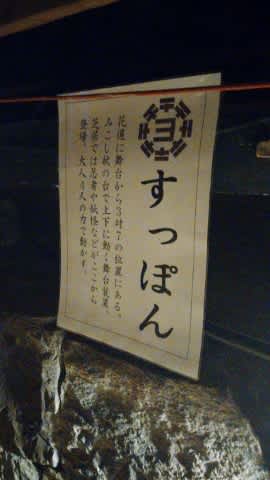 すっぽん
花道に舞台から3対7の位置にある。
みこし状の台で上下に動く舞台装置。
芝居では忍者や妖怪などがここから
登場。大人4人の力で動かす。